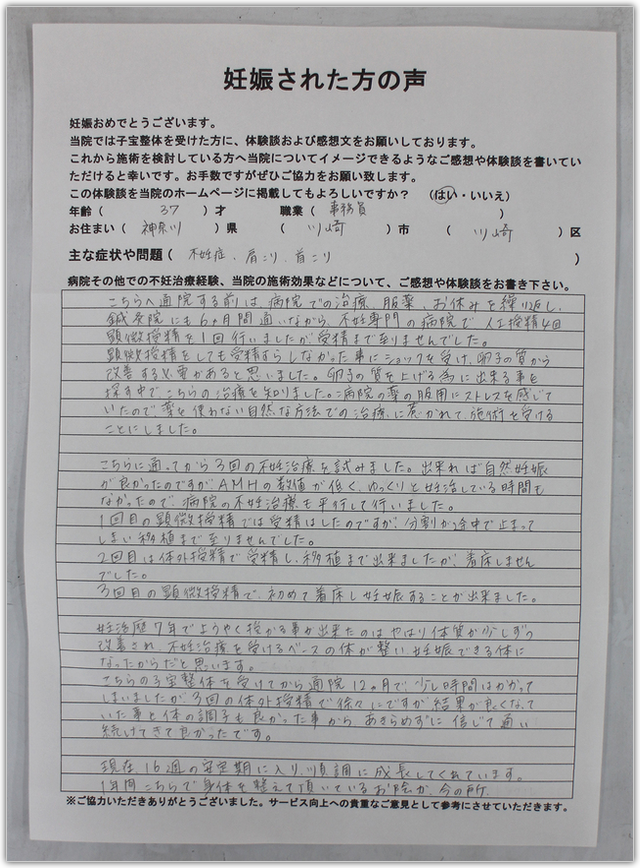 妊娠された方の声
妊娠おめでとうございます。
当院では子宝整体を受けた方に、体験談および感想文をお願いしております。
これから施術を検討している方へ当院についてイメージできるようなご感想や体験談を書いてい
ただけると幸いです。お手数ですがぜひご協力をお願い致します。
この体験談を当院のホームページに掲載してもよろしいですか？ （はい・いいえ）
年齢（ 37 ）才 職業（ 事務員 ）
お住まい（ 神奈川 ）県 （ 川崎 ）市 （ 川崎 ）区
主な症状や問題（ 不妊症、肩こり、首こり ）
病院その他での不妊治療経験、当院の施術効果などについて、ご感想や体験談をお書き下さい。
こちらへ通院する前は、病院での治療、服薬、お休みを繰り返し、
鍼灸院にも6ヶ月間通いながら、不妊専門の病院で人工授精4回
顕微授精を1回行いましたが受精まで至りませんでした。
顕微授精をしても受精すらしなかった事にショックを受け、卵子の質から
改善する必要があると思いました。卵子の質を上げる為に出来る事を
探す中でこちらの治療を知りました。病院の薬の服用にストレスを感じて
いたので薬を使わない自然な方法での治療に惹かれて施術を受ける
ことにしました。
こちらに通ってから3回の不妊治療を試みました。出来れば自然妊娠
が良かったのですがAMHの数値が低く、ゆっくりと妊活している時間も
なかったので、病院の不妊治療も平行して行いました。
1回目の顕微授精では受精はしたのですが、分割が途中で止まって
しまい移植まで至りませんでした。
2回目は体外授精で受精し、移植まで出来ましたが、着床しません
でした。
3回目の顕微授精で、初めて着床し妊娠することが出来ました。
妊活歴7年でようやく授かる事が出来たのはやはり体質が少しずつ
改善され、不妊治療を受けるベースの体が整い妊娠できる体に
なったからだと思います。
こちらの子宝整体を受けてから通院12ヶ月で、少し時間はかかって
しまいましたが、3回の体外授精で徐々にですが結果が良くなって
いた事と体の調子も良かった事から、あきらめずに信じて通い
続けてきて良かったです。
現在16週の安定期に入り、順調に成長してくれています。
1年間こちらで身体を整えて頂いているお陰か、今の所、
※ご協力いただきありがとうございました。サービス向上への貴重なご意見として参考にさせていただきます。